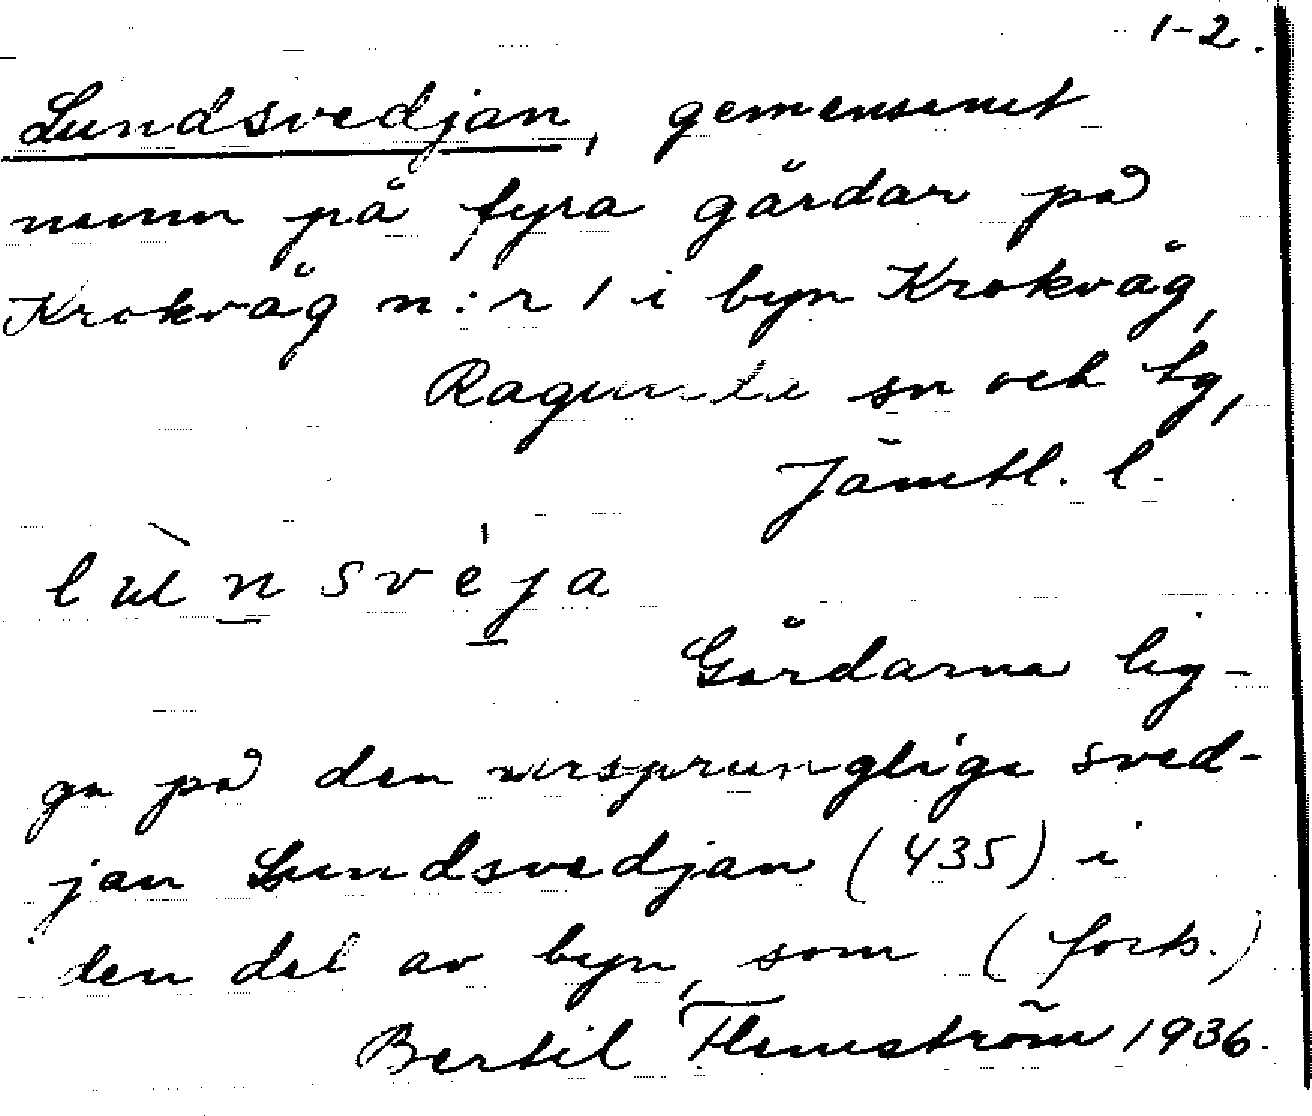 1-2.
Lundsvedjan, gemensamt
namn på fyra gårdar på
Krokvåg n:r 1 i byn Krokvåg,
Ragunda sn och tg,
Jämtl. l.
lunsveja
Gårdarna lig-
ga på den ursprungliga sved-
jan Lundsvedjan (435) i
den del av byn, som (forts.)
Bertil Flemström 1936.